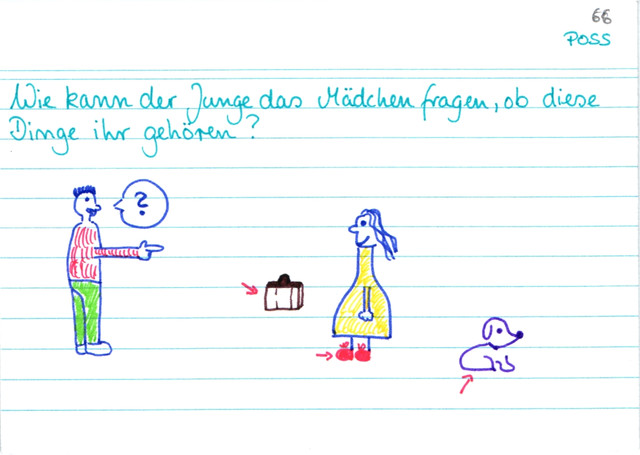 66
POSS
Wie kann der Junge das Mädchen fragen, ob diese
Dinge ihr gehören?
?